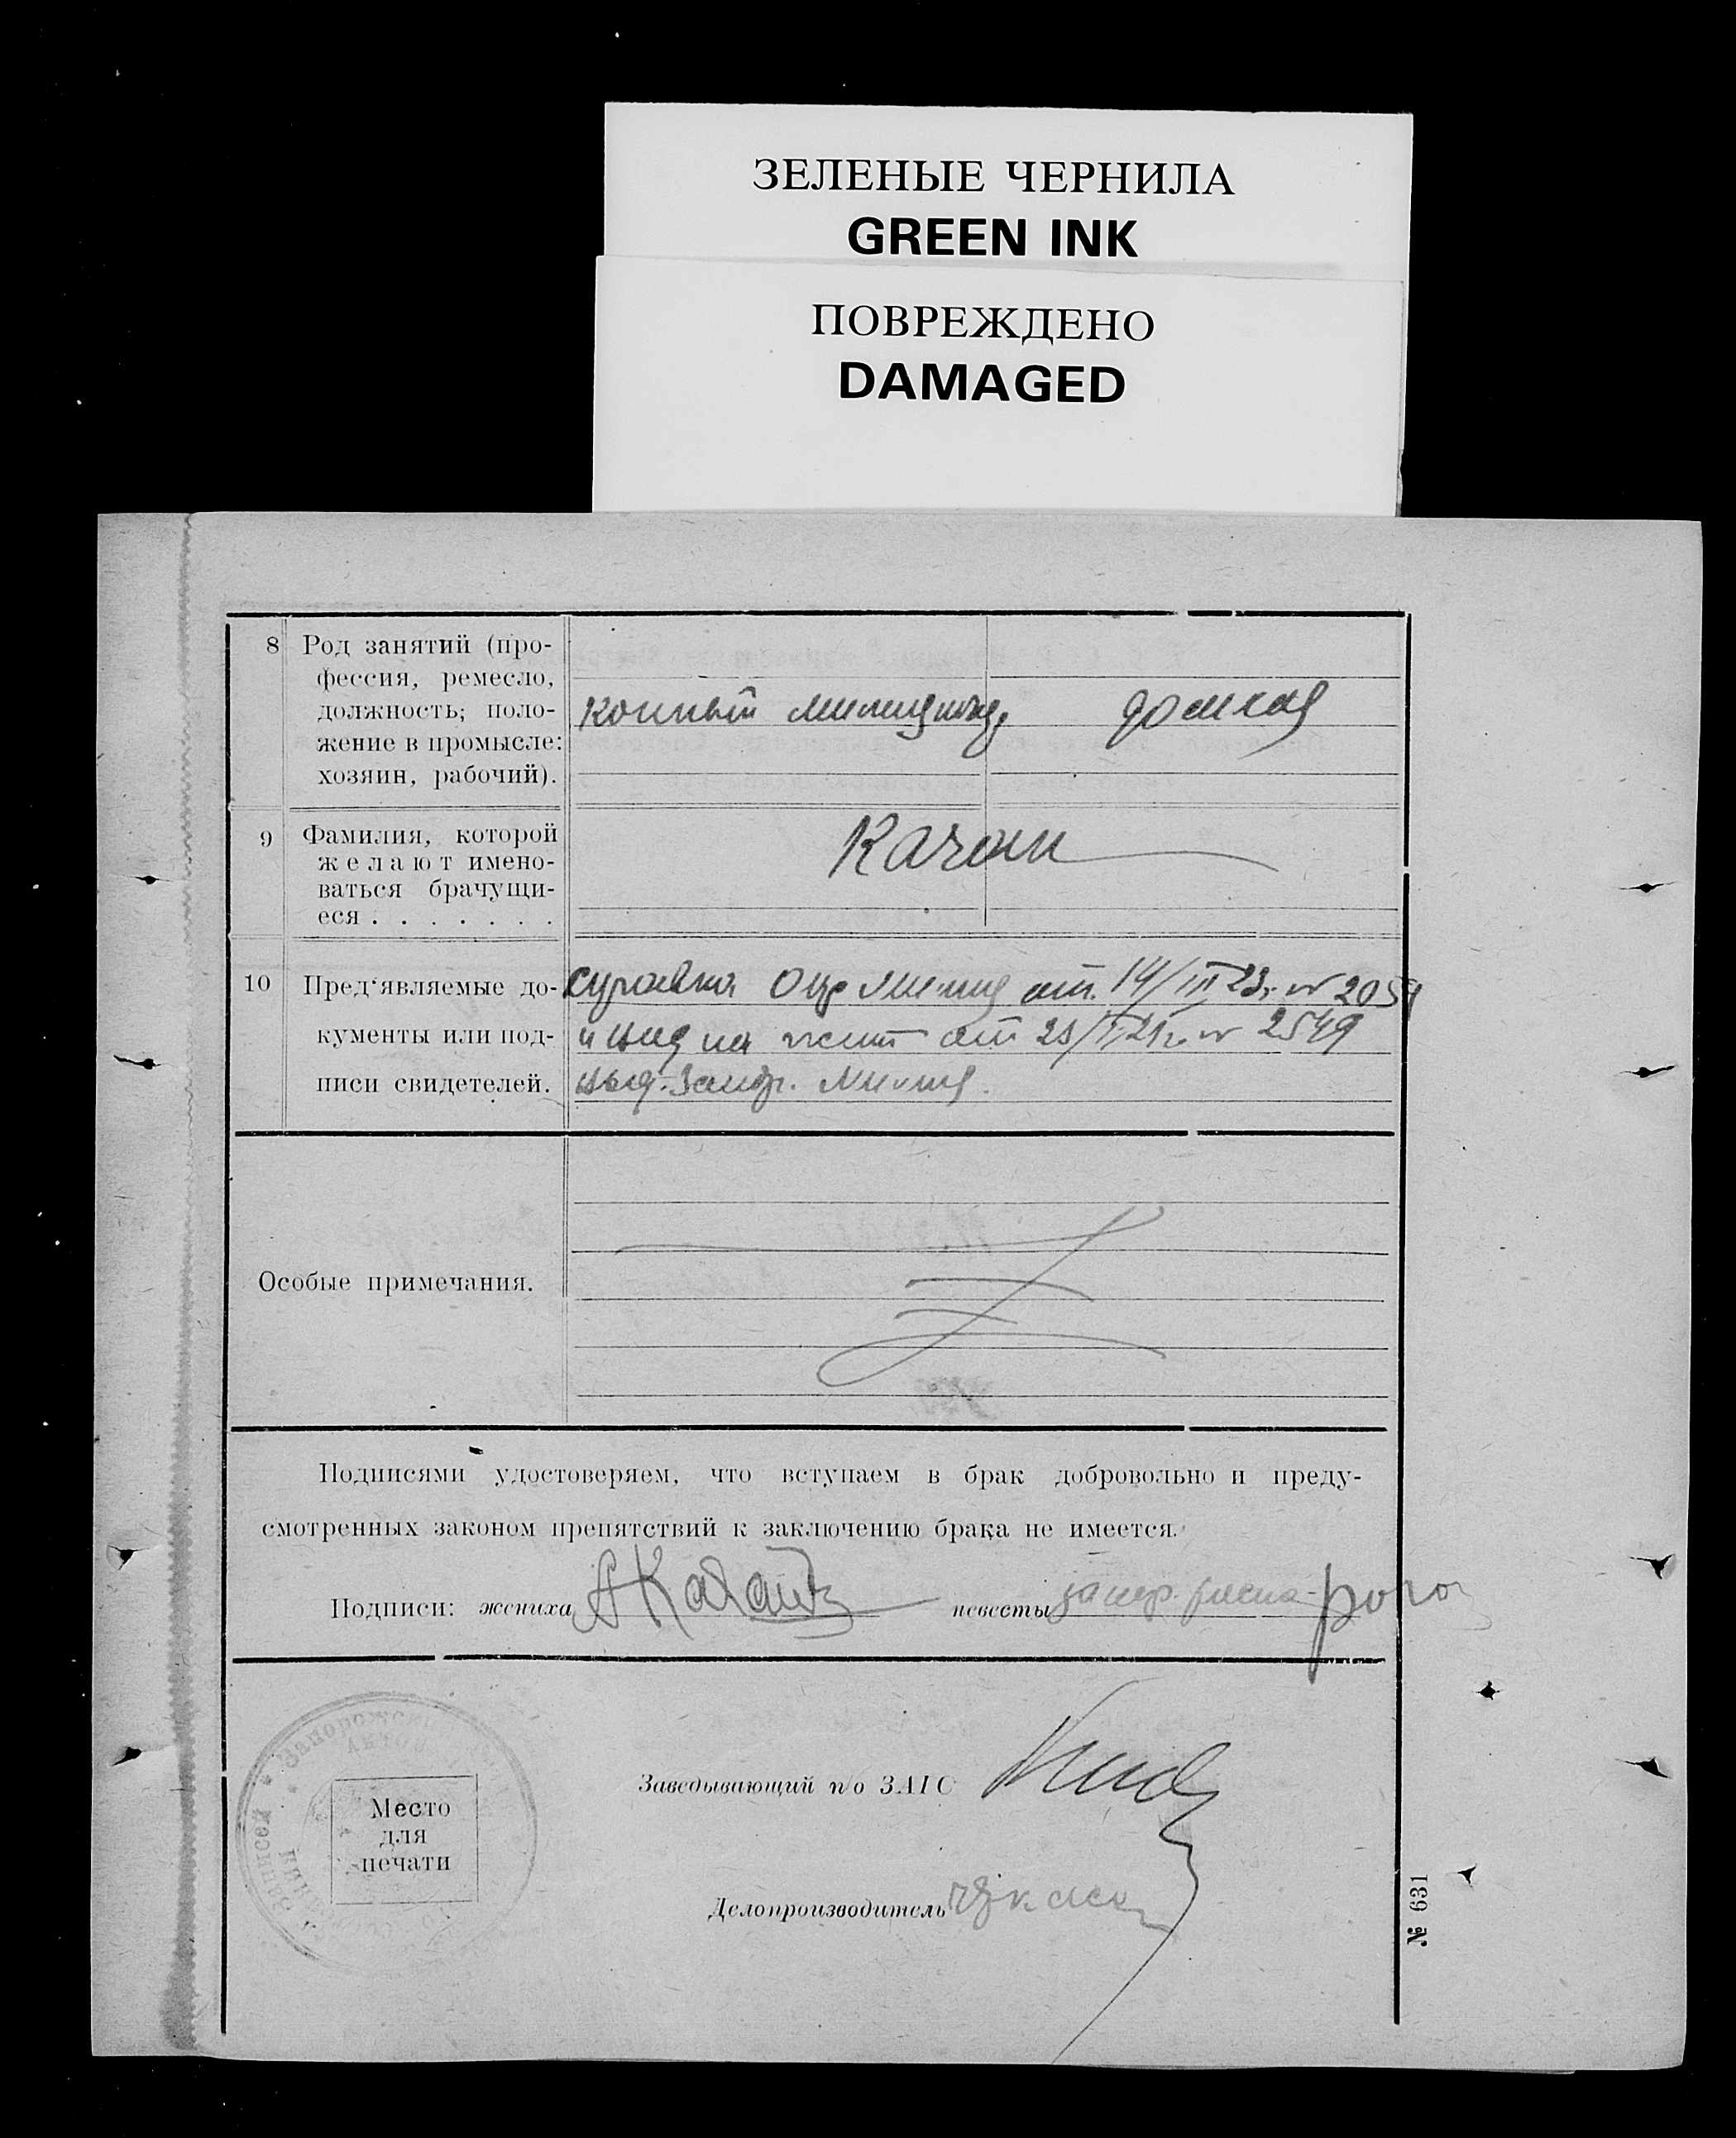 ЗЕЛЕНЫЕ ЧЕРНИЛА
GREEN INK
ПОВРЕЖДЕНО
DAMAGED
8 Род занятий (про-
фессия, ремесло,
должность; поло-
жение в промысле:
хозяин, рабочий).
конный милиц
9 Фамилия, которой
желают имено-
ваться брачущи-
еся . . . . . . .
10 Пред‘являемые до-
кументы или под-
писи свидетелей.
справка милиц от 14/III 23 № 205
и вид на жит от № 2549
выд. милиц.
Особые примечания.
Подписями удостоверяем, что вступаем в брак добровольно и преду-
смотренных законом препятствий к заключению брака не имеется.
Подписи: жениха невесты
Заведывающий п/о ЗАГС
Место
для
печати
Делопроизводитель
№ 631